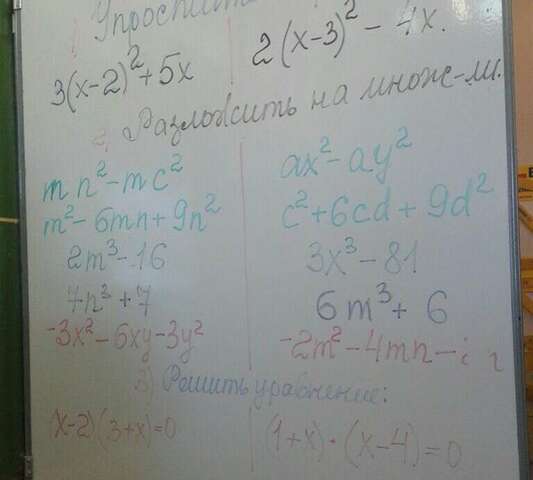 Упростить
3(x-2)²+5x
2(x-3)²-4x.
2) Разложить на множ-ли.
mn²-mc²
ax²-ay²
m²-6mn+9n²
c²+6cd+9d²
2m³-16
3x³-81
7n³+7
6m³+6
-3x²-6xy-3y²
-2m²-4mn-
3) Решить уравнение:
(x-2)(3+x)=0
(1+x)·(x-4)=0